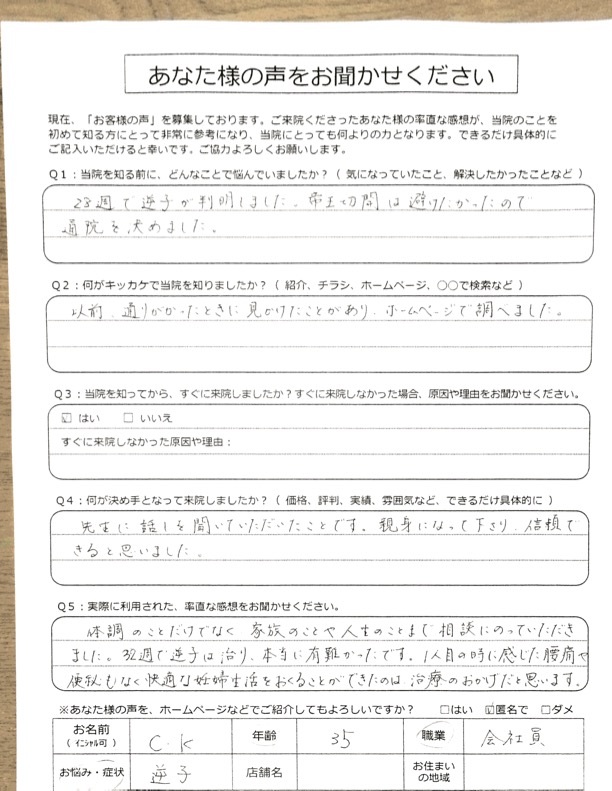 あなた様の声をお聞かせください
現在、「お客様の声」を募集しております。ご来院くださったあなた様の率直な感想が、当院のことを
初めて知る方にとって非常に参考になり、当院にとっても何よりの力となります。できるだけ具体的に
ご記入いただけると幸いです。ご協力よろしくお願いします。
Q1:当院を知る前に、どんなことで悩んでいましたか?(気になっていたこと、解決したかったことなど)
28週で逆子が判明しました。帝王切開は避けたかったので
通院を決めました。
Q2:何がキッカケで当院を知りましたか?(紹介、チラシ、ホームページ、○○で検索など)
以前、通りがかったときに見かけたことがあり、ホームページで調べました。
Q3:当院を知ってから、すぐに来院しましたか?すぐに来院しなかった場合、原因や理由をお聞かせください。
☑ はい □ いいえ
すぐに来院しなかった原因や理由:
Q4:何が決め手となって来院しましたか?(価格、評判、実績、雰囲気など、できるだけ具体的に)
先生に話しを聞いていただいたことです。親身になって下さり、信頼で
きると思いました。
Q5:実際に利用された、率直な感想をお聞かせください。
体調のことだけでなく家族のことや人生のことまで相談にのっていただき
ました。32週で逆子は治り、本当に有難かったです。1人目の時に感じた腰痛や
便秘もなく快適な妊婦生活をおくることができたのは治療のおかげだと思います。
※あなた様の声を、ホームページなどでご紹介してもよろしいですか? □はい ☑匿名で □ダメ
お名前(イニシャル可) C.K 年齢 35 職業 会社員
お悩み・症状 逆子 店舗名 お住まいの地域